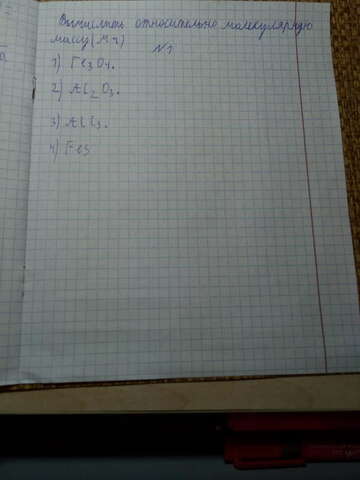 Вычислить относительно молекулярную
массу (Mr)
№1
1) Fe3O4.
2) Al2O3.
3) AlCl3.
4) FeS